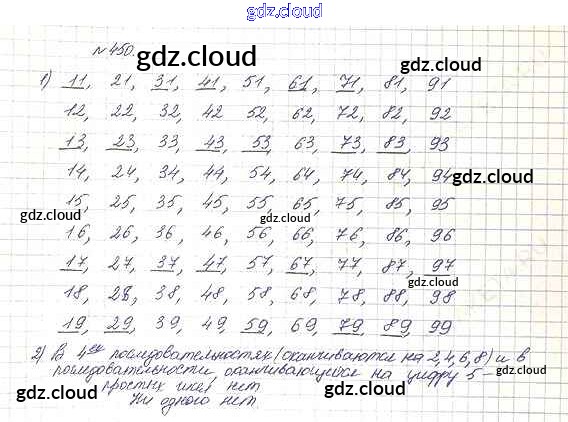 gdz.cloud
№ 450.
gdz.cloud
gdz.cloud
1) 11, 21, 31, 41, 51, 61, 71, 81, 91
gdz.cloud
12, 22, 32, 42 52, 62, 72, 82, 92
13, 23, 33, 43, 53, 63, 73, 83, 93
gdz.cloud
14, 24, 34, 44, 54, 64, 74, 84, 94
gdz.cloud
15, 25, 35, 45, 55, 65, 75, 85, 95
gdz.cloud
gdz.cloud
gdz.cloud
16, 26, 36, 46, 56, 66, 76, 86, 96
17, 27, 37, 47, 57, 67, 77, 87, 97
gdz.cloud
18, 28, 38, 48, 58, 68, 78, 88, 98
19, 29, 39, 49, 59, 69, 79, 89, 99
2) В 4ех последовательностях (оканчиваются на 2,4,6,8) и в
последовательности оканчивающейся на цифру 5 –
gdz.cloud
простых чисел нет
gdz.cloud
Ни одного нет